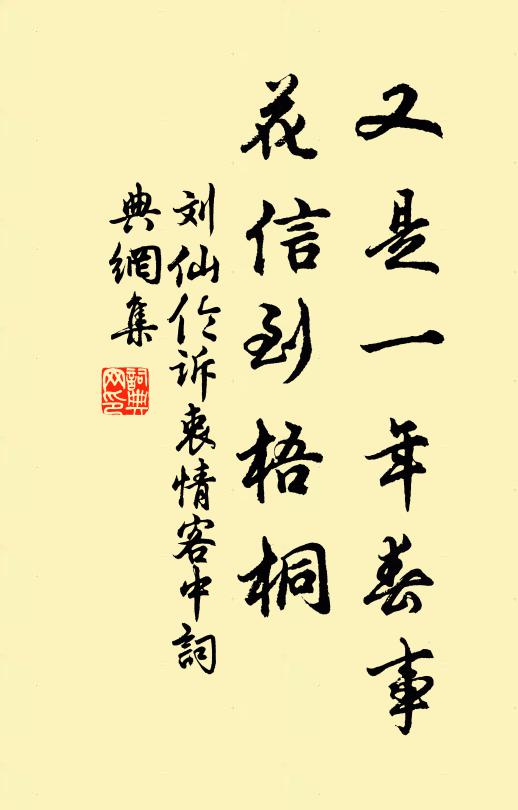 又是一年春事
花信到梧桐
刘仙伦诉衷情客中詞
典網集
詞典網印